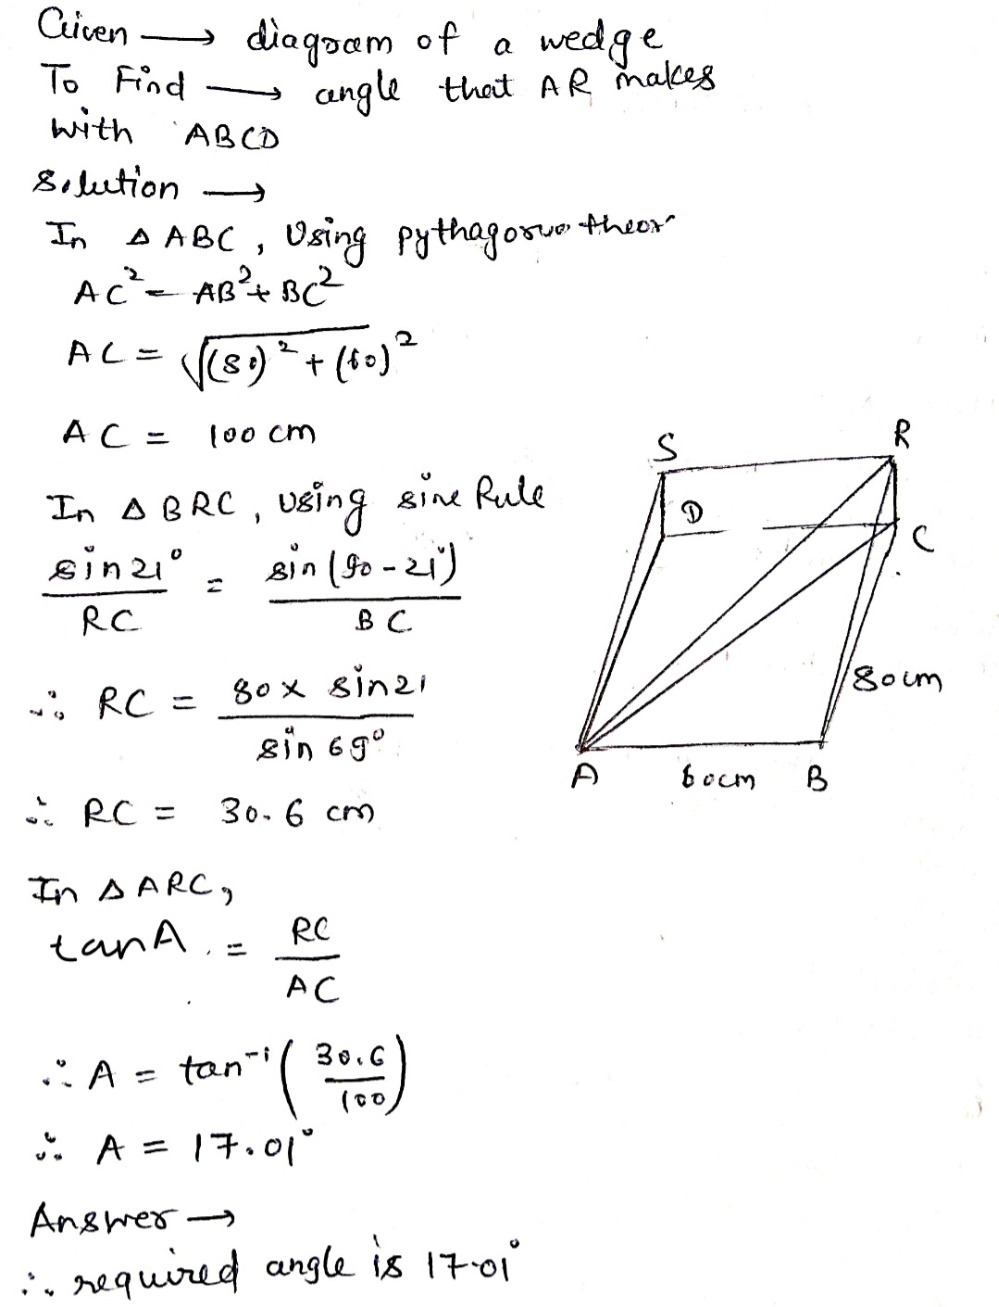 Given ⟶ diagram of a wedge
To Find ⟶ angle that AR makes
with ABCD
Solution ⟶
In Δ ABC, Using pythagorus theor
AC² = AB² + BC²
AC = √(80)² + (60)²
AC = 100 cm
In Δ BRC, using sine Rule
sin21° / RC = sin(90-21°) / BC
∴ RC = 80 x sin21 / sin 69°
∴ RC = 30.6 cm
In Δ ARC,
tanA = RC / AC
∴ A = tan⁻¹ (30.6 / 100)
∴ A = 17.01°
Answer ⟶
∴ required angle is 17.01°
S R
D
C
80cm
A 60cm B